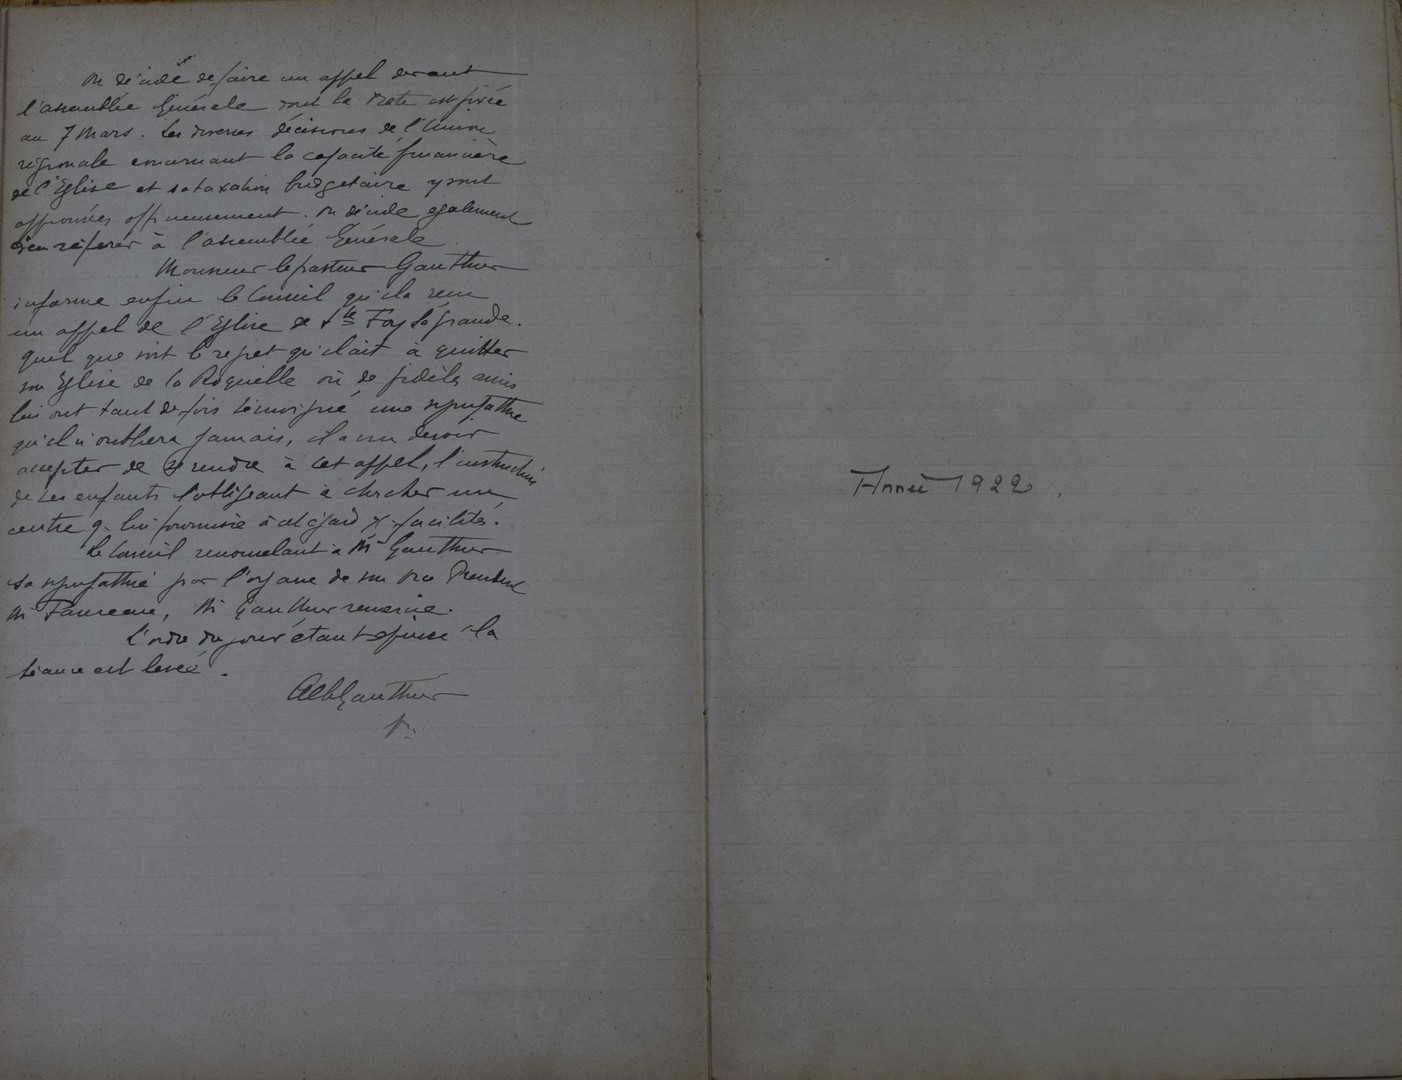 On décide de faire un appel devant
l'assemblée Générale dont la date est fixée
au 7 Mars. Les diverses décisions de l'Union
régionale concernant la capacité financière
de l'Eglise et sa taxation budgetaire y sont
approuvées officieusement. On décide également
d'en référer à l'assemblée Générale.
Monsieur le pasteur Gauthier
informe enfin le Conseil qu'il a reçu
un appel de l'Eglise de Ste Foy la Grande.
Quel que soit le regret qu'il ait à quitter
son Eglise de la Roquille où de fidèles amis
lui ont tant de fois témoigné une sympathie
qu'il n'oubliera jamais, il a cru devoir
accepter de se rendre à cet appel, l'instruction
de ses enfants l'obligeant à chercher un
centre q. lui fournisse à cet égard facilités.
Le Conseil renouvelant à Mr Gauthier
sa sympathie par l'organe de son vice Président
Mr Faureau, Mr Gauthier remercie.
L'ordre du jour étant épuisé la
séance est levée.
Alb Gauthier
Année 1922.